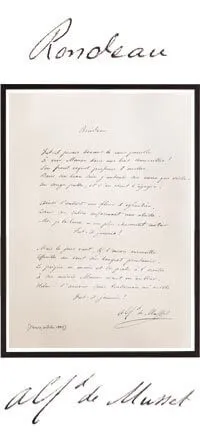 Rondeau
Rondeau
Fut-il jamais douceur de cœur pareille
À voir Manon dans mes bras sommeiller !
Son front coquet parfume l'oreiller
Dans son beau sein j'entends son cœur qui veille
Un songe passe, et s'en vient l'égayer.
Ainsi s'endort une fleur d'églantier
Dans son calice enfermant une abeille.
Moi je la berce un plus charmant métier
Fut-il jamais !
Mais le jour vient, et l'aurore vermeille
Effeuille au vent son bouquet printanier.
Le peigne en main et la perle à l'oreille
À son miroir Manon court m'oublier.
Hélas ! l'amour sans lendemain ni veille
Fut-il jamais !
Alfd de Musset
Alfd de Musset